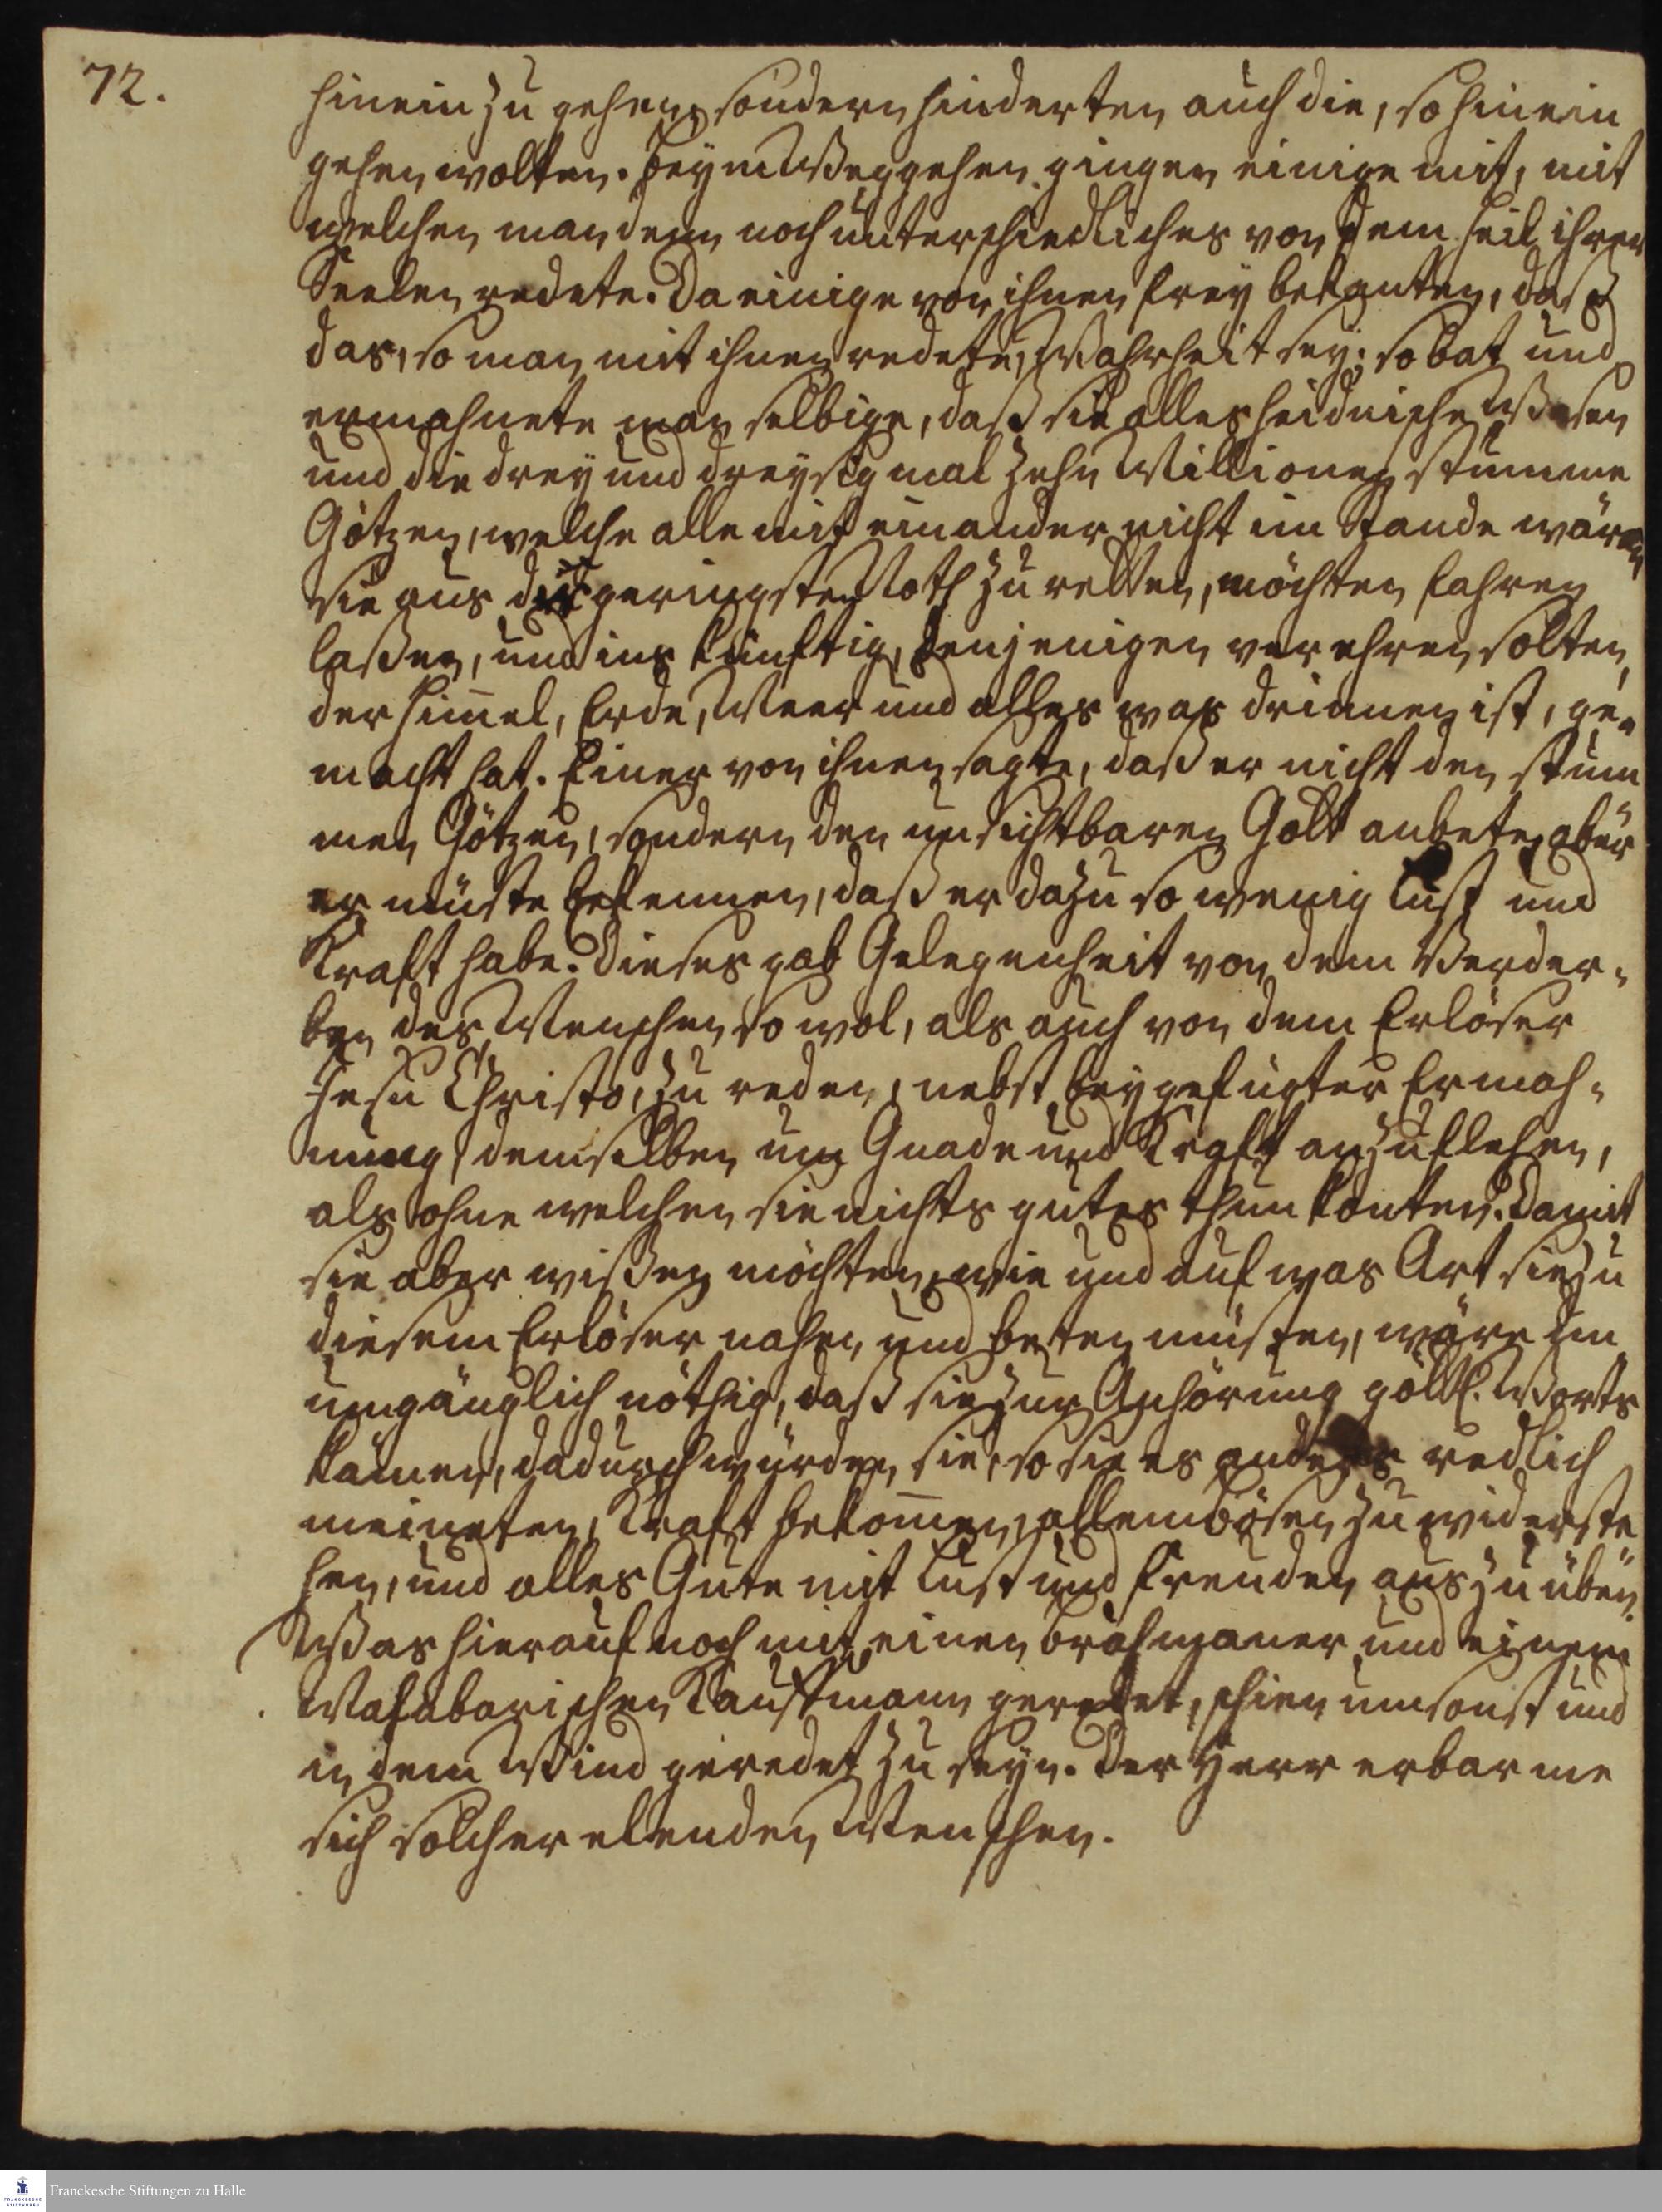 72.
hinein zu gehen, sondern hinderten auch die, so hinein
gehen wolten. Beym Weggehen gingen einige mit, mit
welchen man denn noch unterschiedliches von dem Heil ihrer
Seelen redete. Da einige von ihnen frey bekanten, daß
das, so man mit ihnen redete, Wahrheit sey: so bat und
ermahnete man selbige, daß sie alles heidnische Wesen
und die drey und dreysig mal zehn Millionen stumme
Götzen, welche alle mit einander nicht im Stande wären
sie aus der geringsten Noth zu retten, möchten fahren
laßen, und ins künftig, denjenigen verehren solten,
der Him̄el, Erde, Meer und alles was drinnen ist, ge„
macht hat. Einer von ihnen sagte, daß er nicht den stum
men Götzen, sondern den unsichtbaren Gott anbete, aber
er müste bekennen, daß er dazu so wenig Lust und
Kraft habe. Dieses gab Gelegenheit von dem Verder„
ben des Menschen so wol, als auch von dem Erlöser
Jesu Christo, zu reden, nebst beygefügter Ermah„
nung, demselben um Gnade und Kraft anzuflehen,
als ohne welchen sie nichts gutes thun konten. Damit
sie aber wißen möchten, wie und auf was Art sie zu
diesem Erlöser nahen und beten müsten, wäre un
umgänglich nöthig, daß sie zur Anhörung göttl. Worts
kämen, dadurch würden sie, so sie es anders redlich
meineten, Kraft bekom̄en, allem bösen zu widerste
hen, und alles Gute mit Lust und Freuden auszuüben.
Was hierauf noch mit einen Brahmaner und einem
Malabarischen Kauffmann geredet, schien umsonst und
in dem Wind geredet zu seyn. Der Herr erbarme
sich solcher elenden Menschen.
Franckesche Stiftungen zu Halle
FRANCKESCHE
STIFTUNGEN